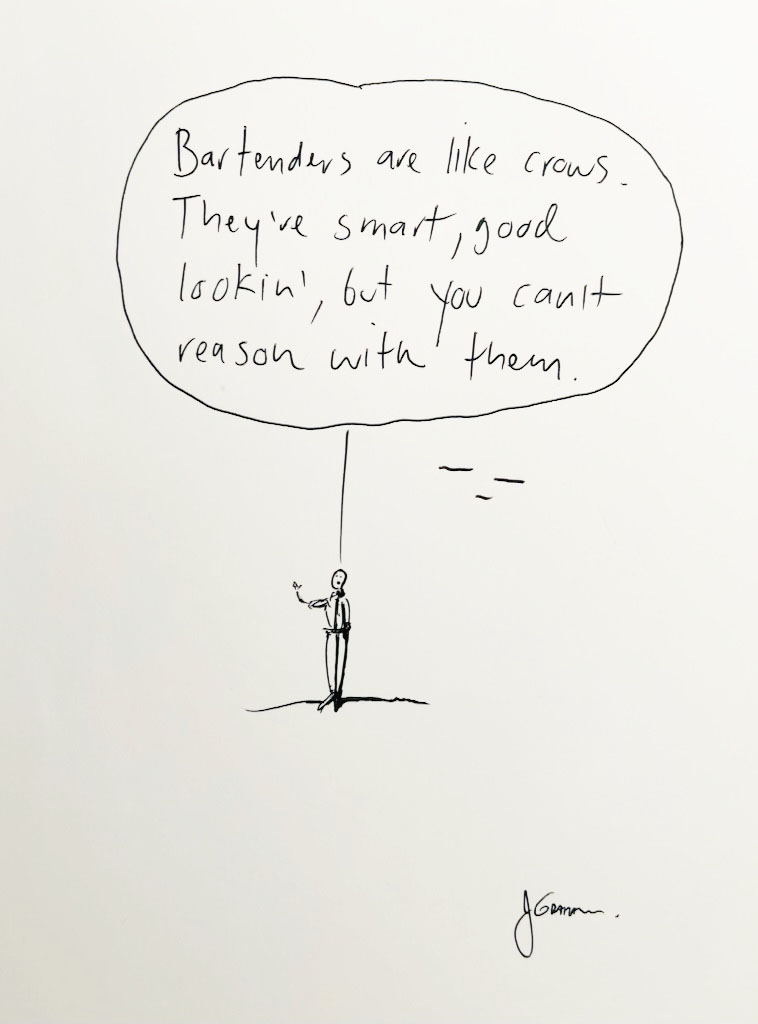 Bartenders are like crows.
They're smart, good
lookin', but you can't
reason with them.